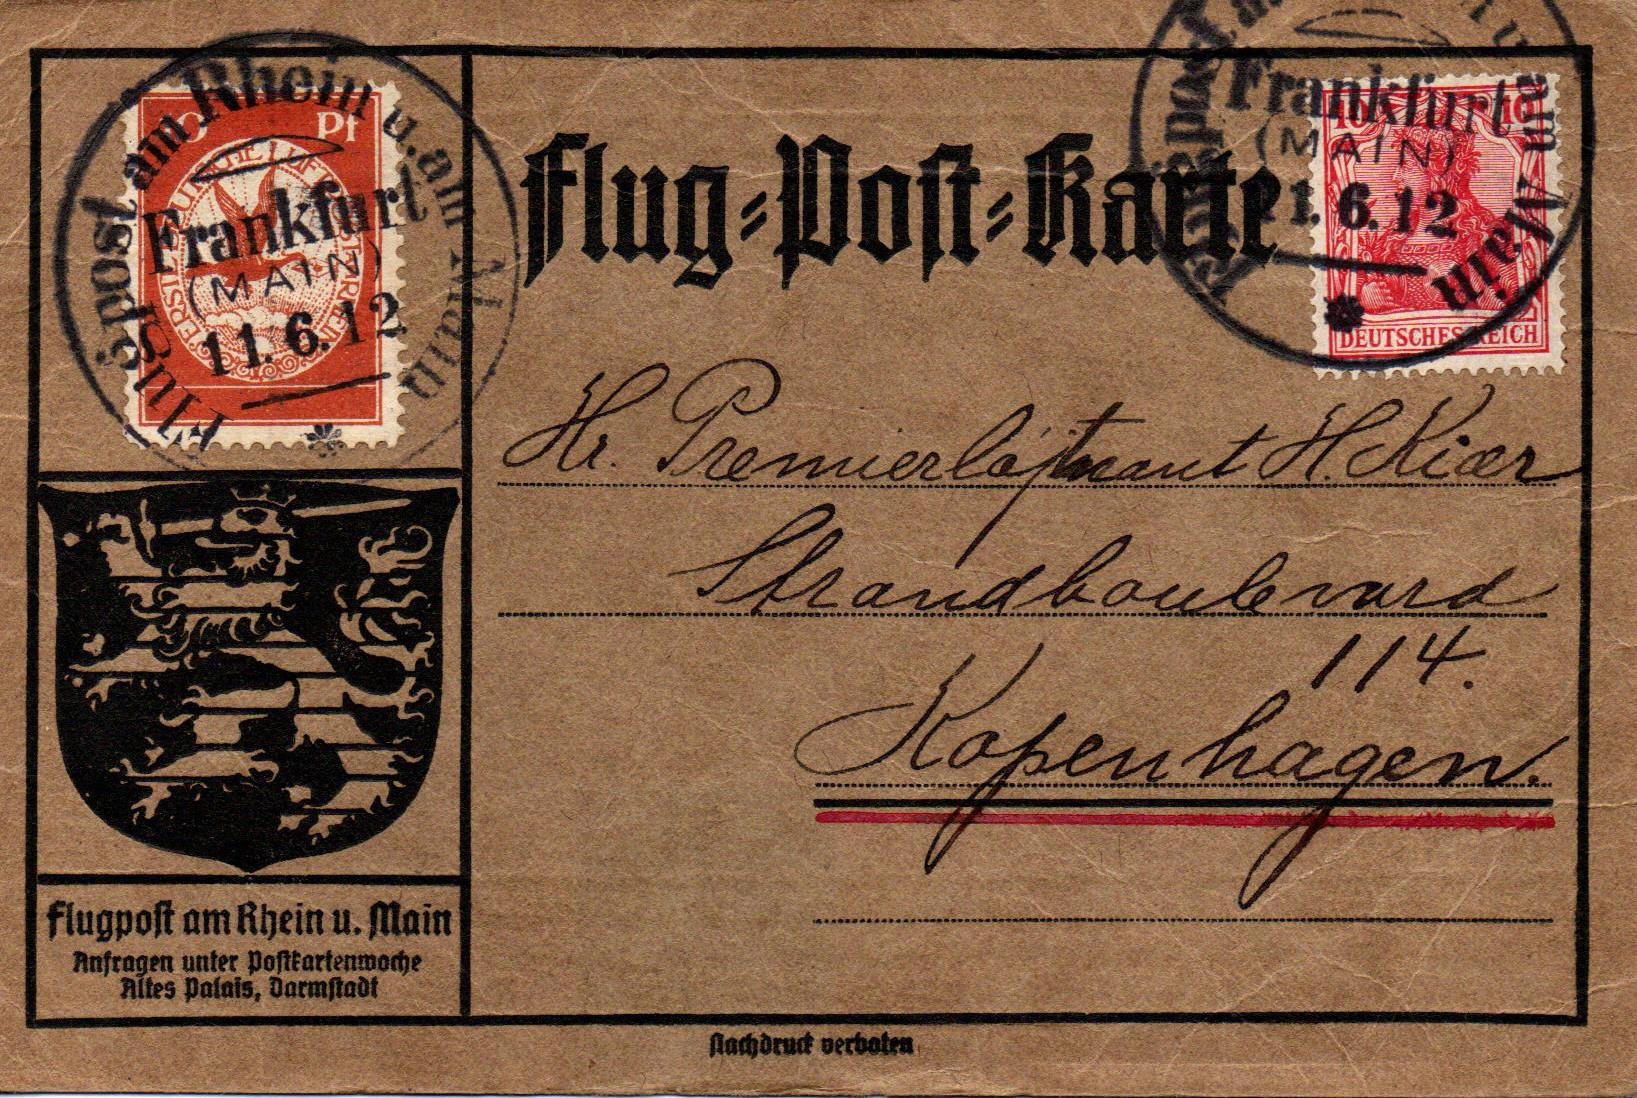 Flugpost am Rhein u. am Main
Frankfurt
(MAIN)
11.6.12
10 Pf
Flug=Post=Karte
Flugpost am Rhein u. am Main
Frankfurt
(MAIN)
11.6.12
10 10
DEUTSCHES REICH
Hr. Premierløjtnant H. Kiær
Strandboulevard
114.
Kopenhagen.
Flugpost am Rhein u. Main
Anfragen unter Postkartenwoche
Altes Palais, Darmstadt
Nachdruck verboten